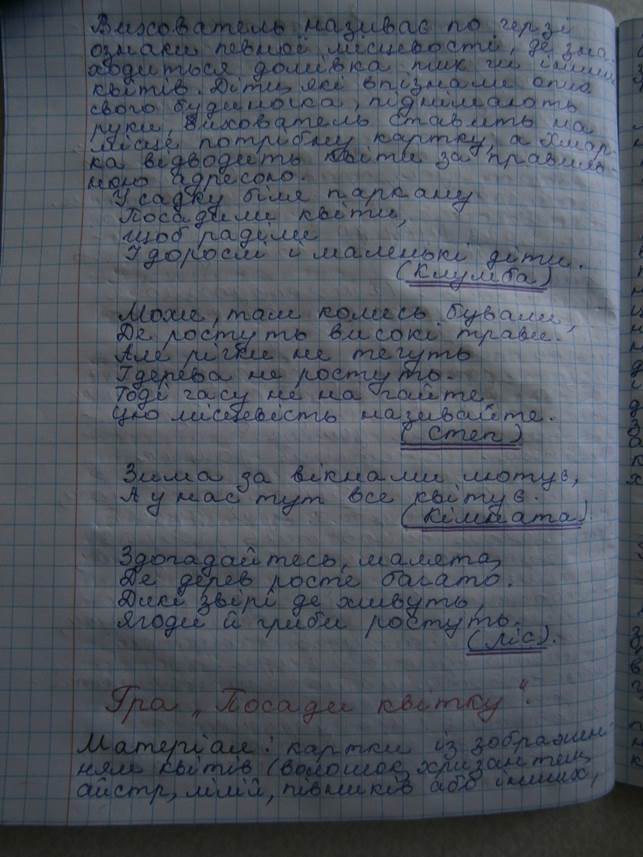 Вихователь називає по черзі
ознаки певної місцевості, де зна-
ходиться домівка тих чи інших
квітів. Діти, які впізнали опис
свого будиночка, піднімають
руки, вихователь ставить на
місце потрібну картку, а хмар-
ка відводить квіти за правиль-
ною адресою.
У садку біля паркану
Посадили квіти,
щоб раділи
І дорослі і маленькі діти.
(Клумба)
Може, там колись бували,
Де ростуть високі трави.
Але річки не течуть
І дерева не ростуть.
Тоді часу не на гайте
Цю місцевість називайте.
(Степ)
Зима за вікнами лютує,
А у нас тут все квітує.
(Кімната)
Здогадайтесь, малята,
Де дерев росте багато.
Дикі звірі де живуть,
Ягоди й гриби ростуть.
(Ліс).
Гра „Посади квітку".
Матеріал: картки із зображен-
ням квітів (волошок, хризантем,
айстр, лілій, півників або інших,